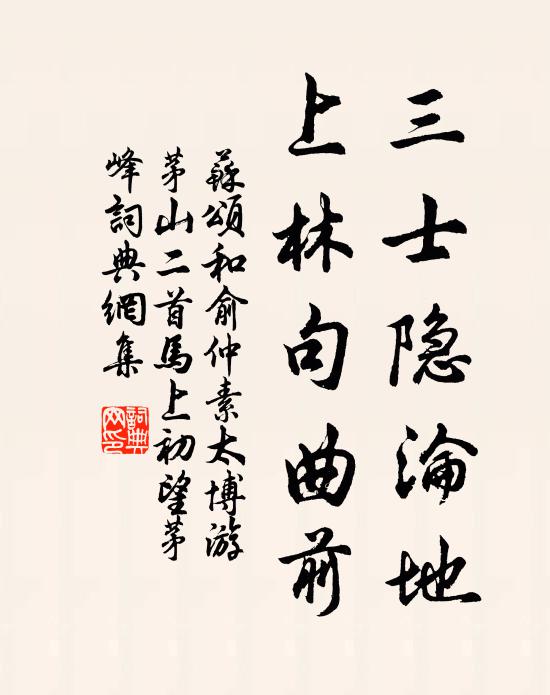 三士隐淪地
上林句曲前
蘇頌和俞仲素太博游
茅山二首馬上初望茅
峰詞典網集
詞典网印